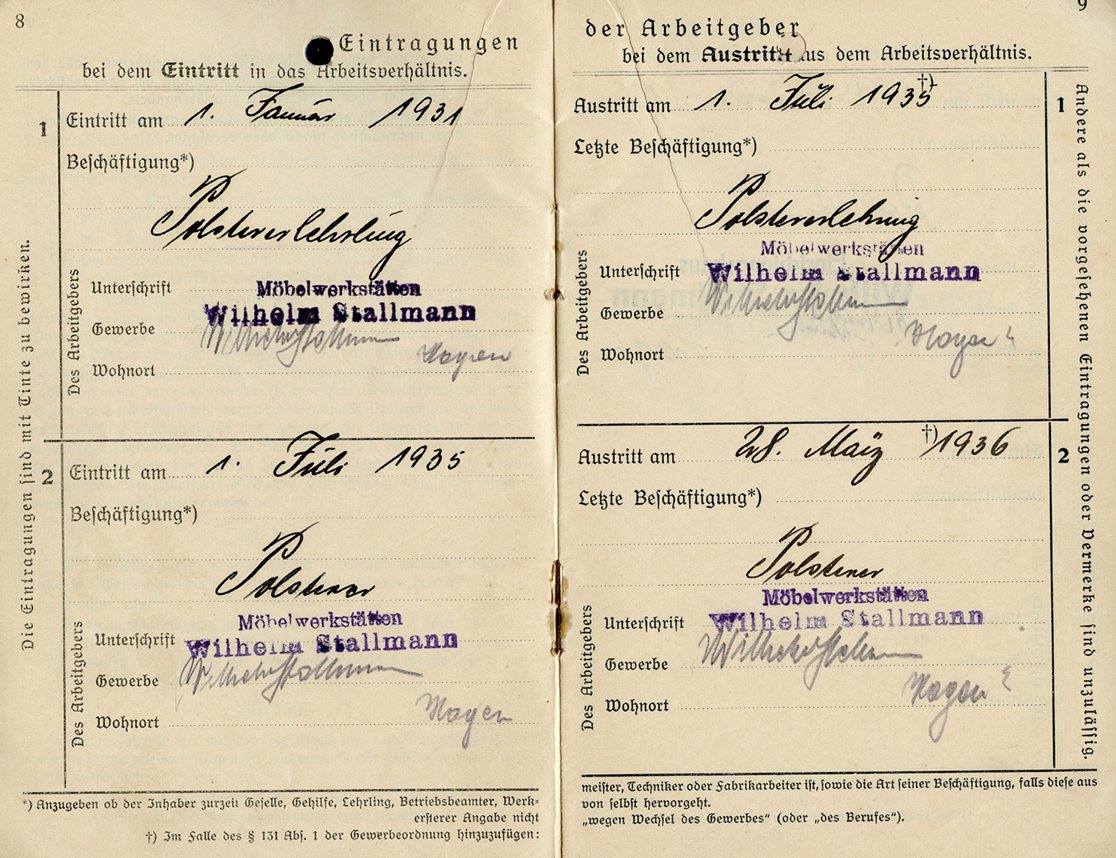 8
Eintragungen
bei dem Eintritt in das Arbeitsverhältnis.
1
Eintritt am 1. Januar 1931
Beschäftigung*)
Polsterlehrling
Des Arbeitgebers
Unterschrift
Gewerbe
Wohnort
Möbelwerkstätten
Wilhelm Stallmann
Wilhelm Stallmann
2
Eintritt am 1. Juli 1935
Beschäftigung*)
Polsterer
Des Arbeitgebers
Unterschrift
Gewerbe
Wohnort
Möbelwerkstätten
Wilhelm Stallmann
Wilhelm Stallmann
Die Eintragungen sind mit Tinte zu bewirken.
*) Anzugeben ob der Inhaber zurzeit Geselle, Gehilfe, Lehrling, Betriebsbeamter, Werk-
ersterer Angabe nicht
†) Im Falle des § 131 Abs. 1 der Gewerbeordnung hinzuzufügen:
9
der Arbeitgeber
bei dem Austritt aus dem Arbeitsverhältnis.
1
Austritt am 1. Juli 1935 †)
Letzte Beschäftigung*)
Des Arbeitgebers
Unterschrift
Gewerbe
Wohnort
Möbelwerkstätten
Wilhelm Stallmann
Wilhelm Stallmann
2
Austritt am 28. März †) 1936
Letzte Beschäftigung*)
Polsterer
Des Arbeitgebers
Unterschrift
Gewerbe
Wohnort
Möbelwerkstätten
Wilhelm Stallmann
Wilhelm Stallmann
Andere als die vorgesehenen Eintragungen oder Vermerke sind unzulässig.
meister, Techniker oder Fabrikarbeiter ist, sowie die Art seiner Beschäftigung, falls diese aus
von selbst hervorgeht.
„wegen Wechsel des Gewerbes“ (oder „des Berufes“).